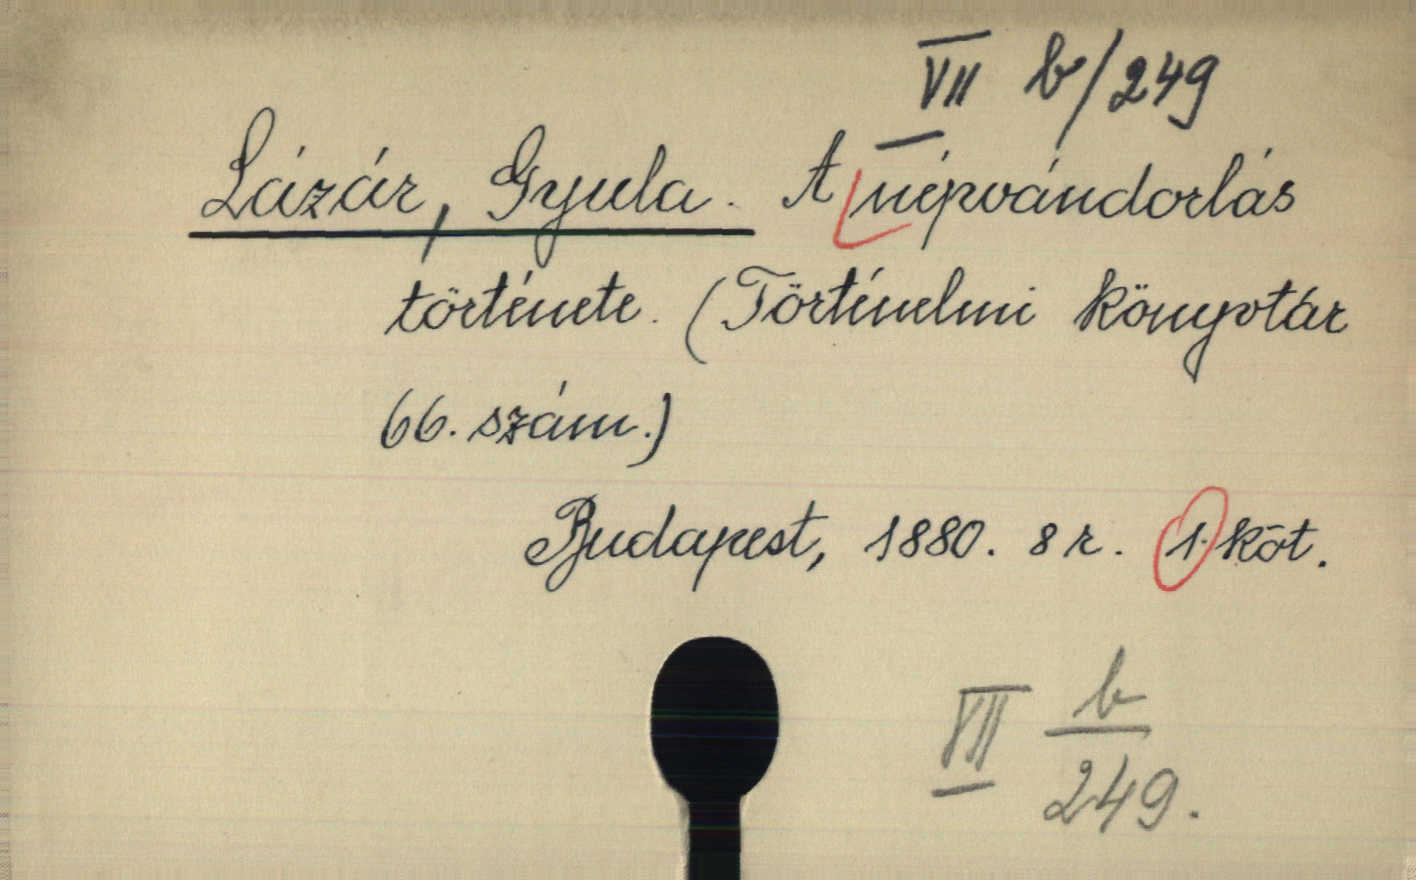 VII b/249
Lázár, Gyula. A népvándorlás
története. (Történelmi könyvtár
66. szám.)
Budapest, 1880. 8 r. 1. köt.
VII b
249.